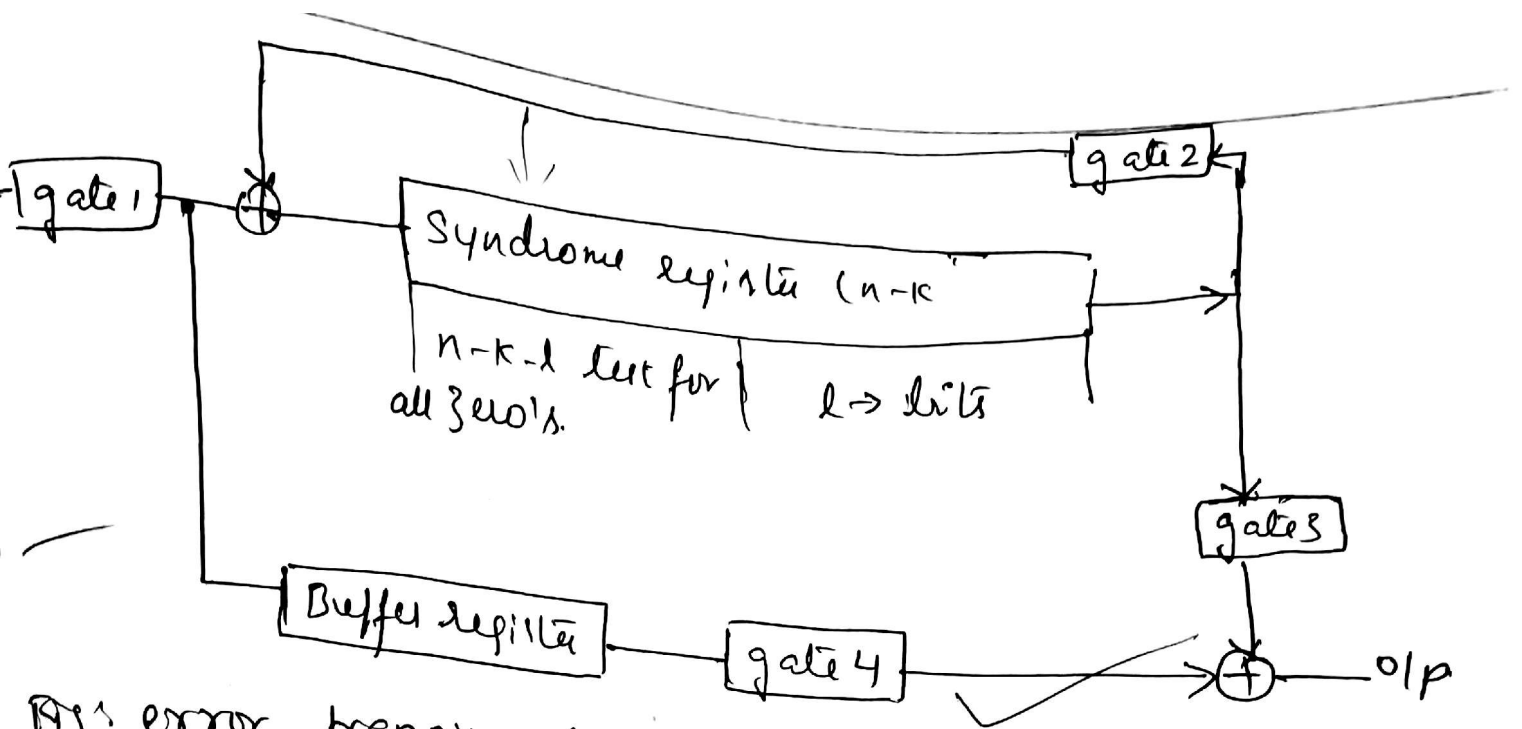 gate 2
gate 1
Syndrome register (n-k
n-k-l test for
all zero's.
l → bits
gate 3
Buffer register
gate 4
o/p
error